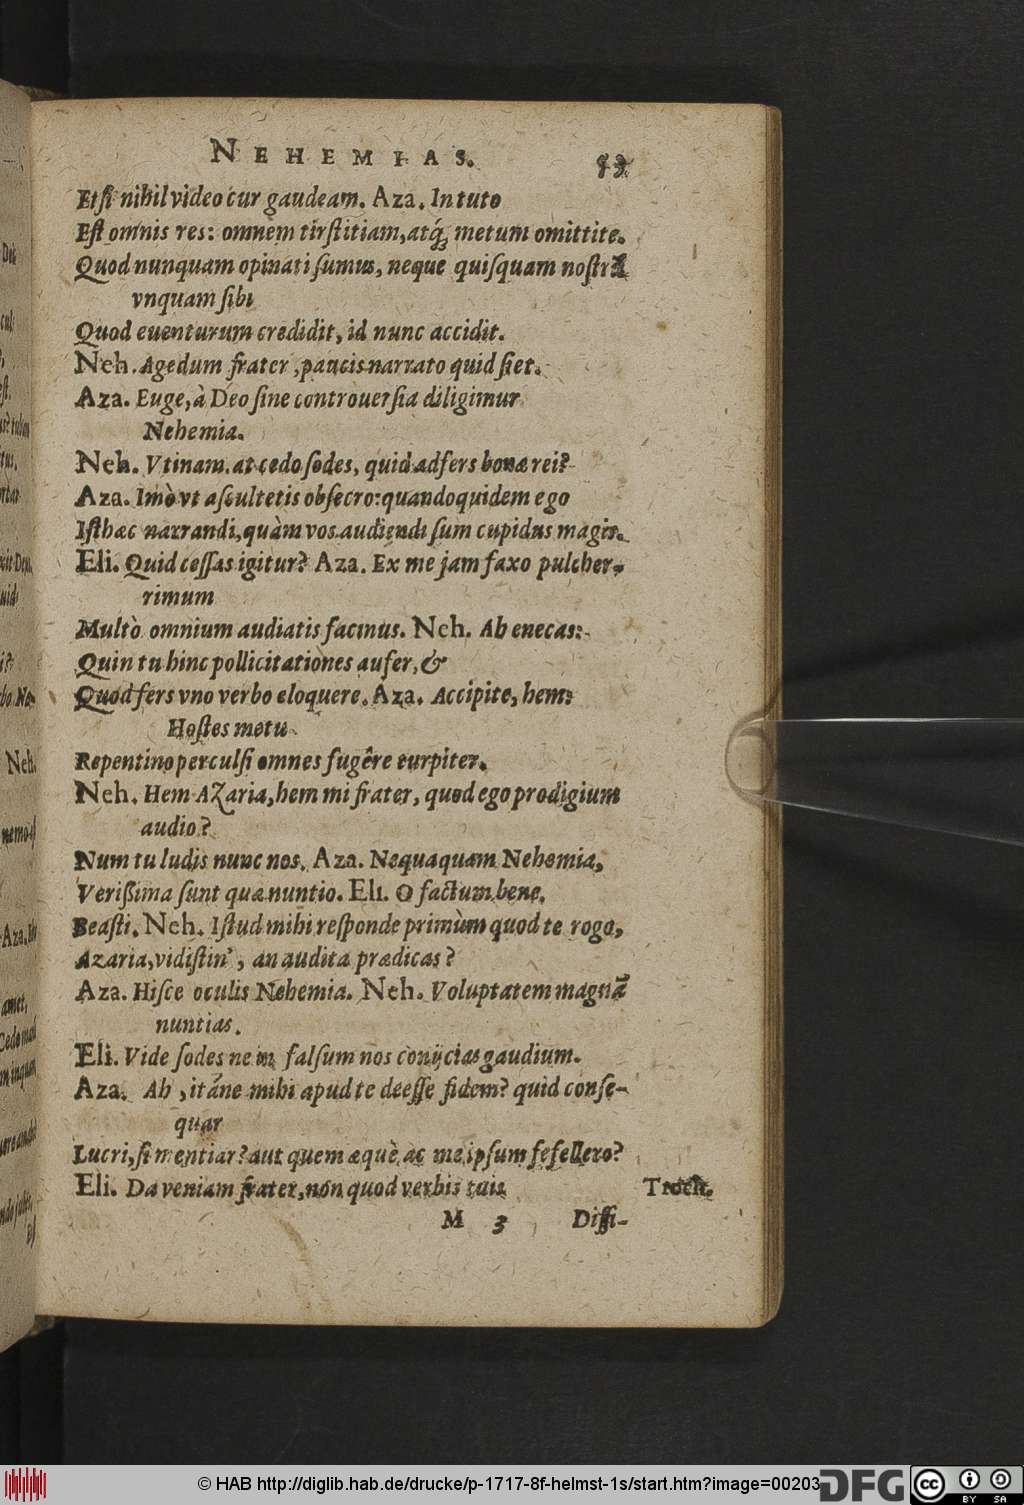 NEHEMIAS. 93
Etsi nihil video cur gaudeam. Aza. In tuto
Est omnis res: omnem tirstitiam, atq́; metum omittite.
Quod nunquam opinati sumus, neque quisquam nostrũ
vnquam sibi
Quod euenturum credidit, id nunc accidit.
Neh. Agedum frater, paucis narrato quid siet.
Aza. Euge, à Deo sine controuersia diligimur
Nehemia.
Neh. Vtinam. at cedo sodes, quid adfers bonæ rei?
Aza. Imò vt ascultetis obsecro: quandoquidem ego
Isthæc narrandi, quàm vos audiendi sum cupidus magis.
Eli. Quid cessas igitur? Aza. Ex me jam faxo pulcher-
rimum
Multò omnium audiatis facinus. Neh. Ah enecas:
Quin tu hinc pollicitationes aufer, &
Quod fers vno verbo eloquere. Aza. Accipite, hem:
Hostes metu
Repentino perculsi omnes fugêre turpiter.
Neh. Hem AZaria, hem mi frater, quod ego prodigium
audio?
Num tu ludis nunc nos. Aza. Nequaquam Nehemia,
Verißima sunt quæ nuntio. Eli. O factum bene,
Beasti. Neh. Istud mihi responde primùm quod te rogo,
Azaria, vidistin', an audita prædicas?
Aza. Hisce oculis Nehemia. Neh. Voluptatem magnã
nuntias.
Eli. Vide sodes ne in falsum nos conijcias gaudium.
Aza. Ah, itáne mihi apud te deesse fidem? quid conse-
quar
Lucri, si mentiar? aut quem æquè ac me ipsum fefellero?
Eli. Da veniam frater, non quod verbis tuis
M 3 Diffi-
© HAB http://diglib.hab.de/drucke/p-1717-8f-helmst-1s/start.htm?image=00203
DFG
cc
BY SA